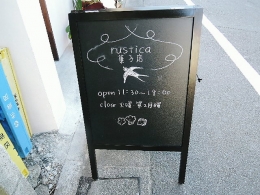 rustica
菓子店
open 11:30~18:00
close 火曜 第2月曜